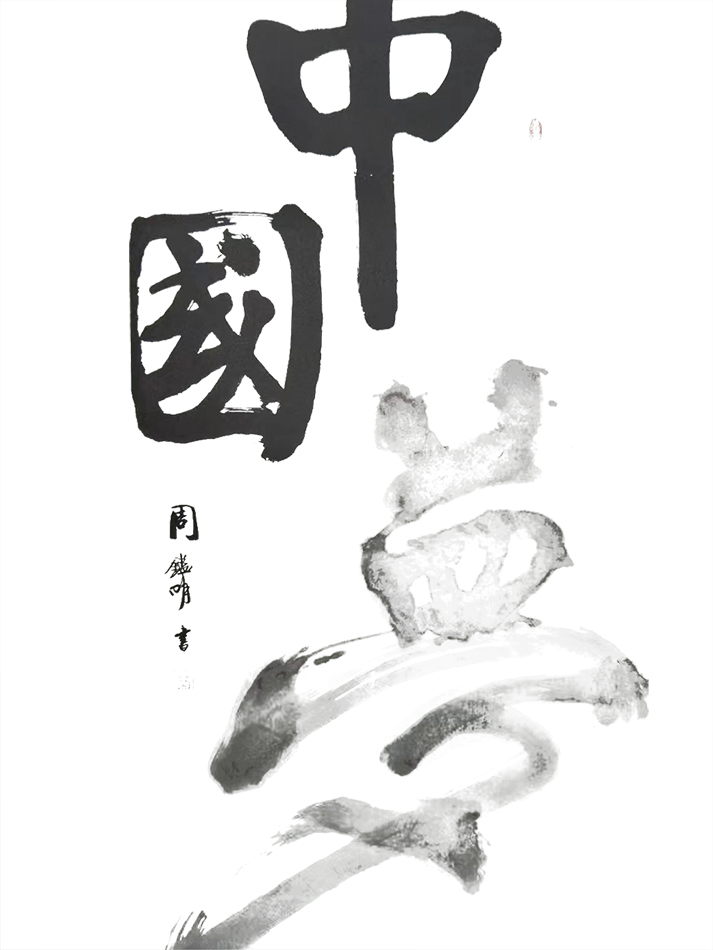 中
國
夢
周 明 書